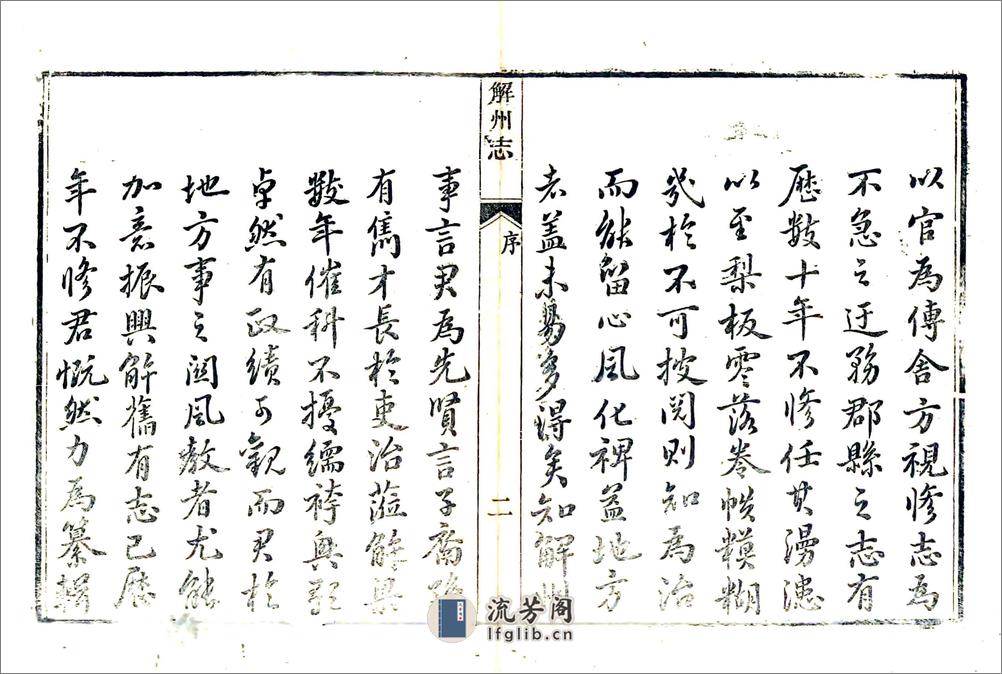 以官為傳舍方視修志為
不急之迂務郡縣之志有
歷數十年不修任其漫漶
以至梨板零落卷帙糢糊
幾於不可披閱則知為治
而能留心風化裨益地方
者蓋未易多得矣知解州
解州志
序
二
事言君為先賢言子裔
有雋才長於吏治蒞解
數年催科不擾繻袴興歌
卓然有政績可觀而君於
地方事之關風教者尤能
加意振興解舊有志已歷
年不修君慨然力為纂輯
流芳阁
lfglib.cn